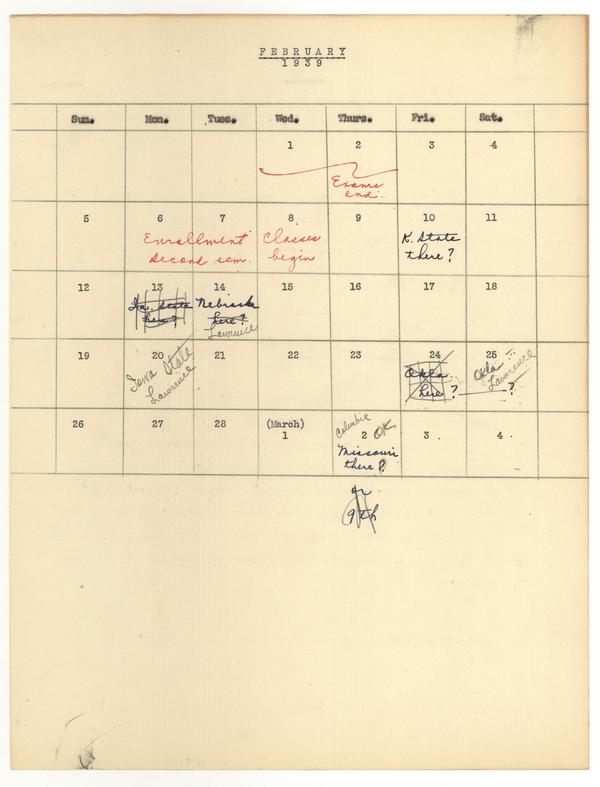 FEBRUARY
1939
Sun. Mon. Tues. Wed. Thurs. Fri. Sat.
1 2 3 4
Exams
end.
5 6 7 8 9 10 11
Enrollment Classes K. State
second sem. begin there?
12 13 14 15 16 17 18
Ia. State Nebraska
here? here?
Lawrence
19 20 21 22 23 24 25
Iowa State
Lawrence
Okla. Okla
here ? ? Lawrence
26 27 28 (March)
1 2 3 4
Columbia OK
Missouri
there?
or
9th